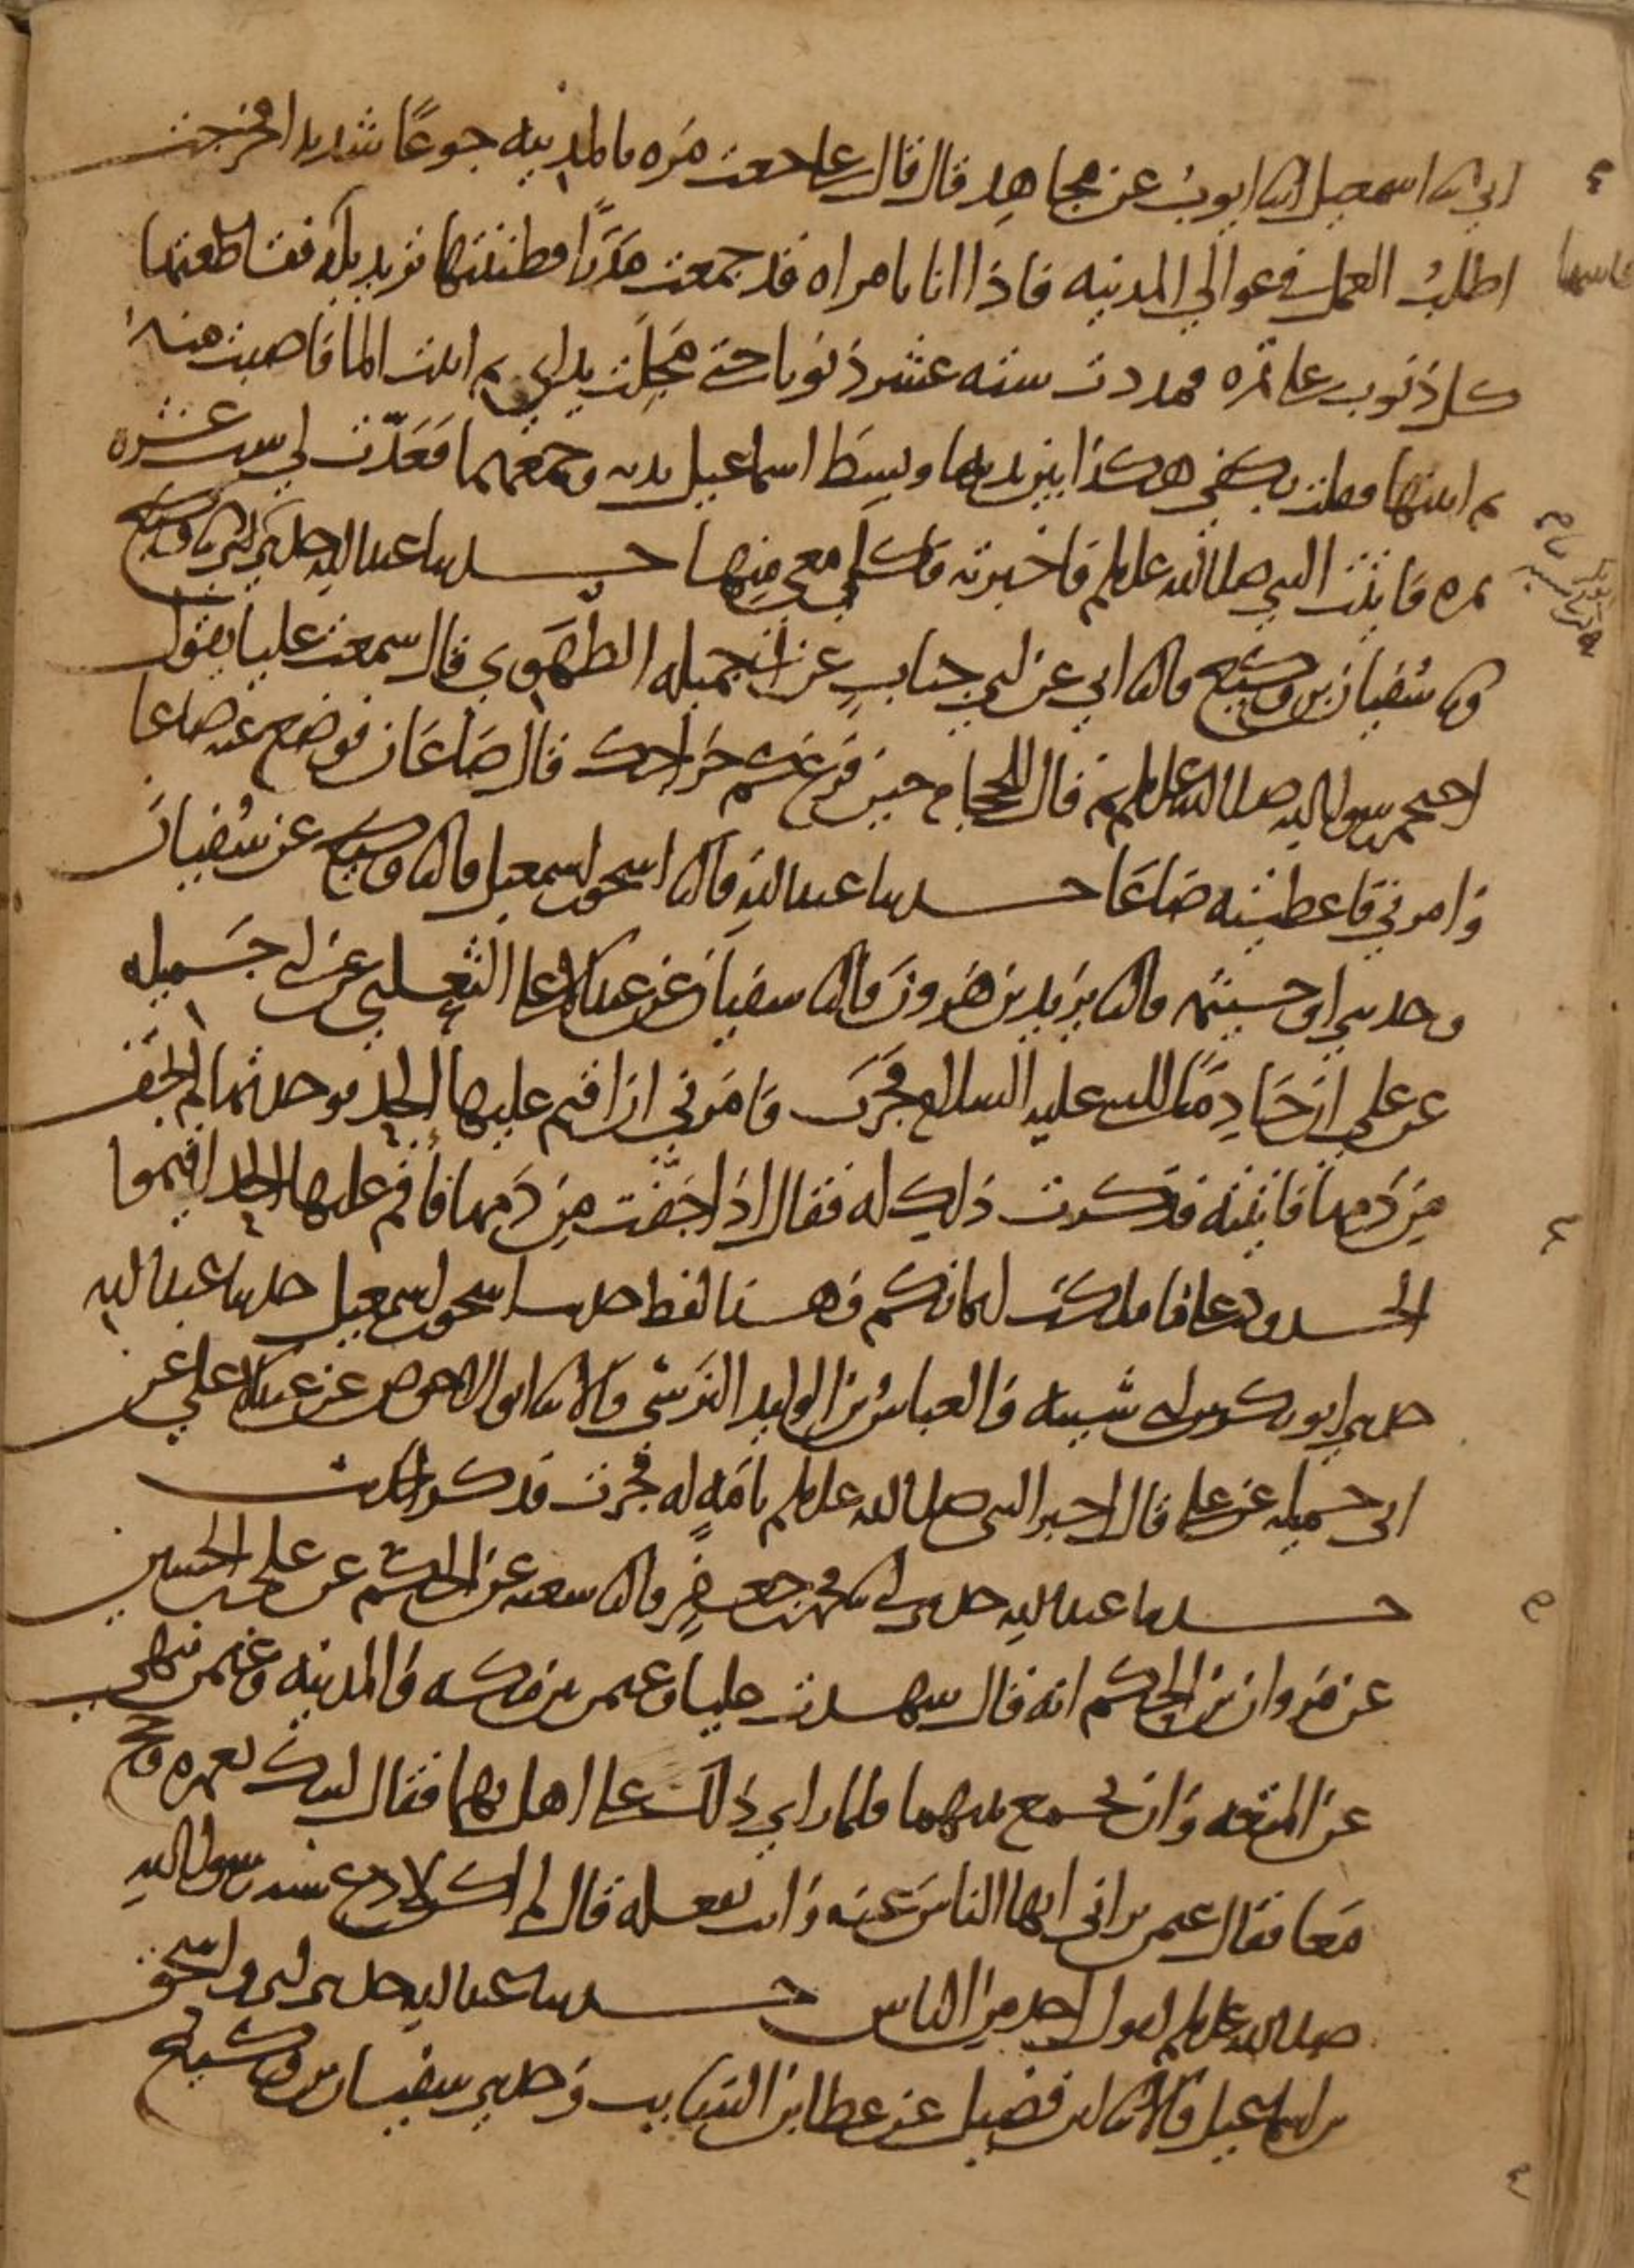 ابي ثنا اسمعيل انبا ايوب عن مجاهد قال قال علي جعت مره بالمدينه جوعًا شديدا فخرجت
اطلب العمل في عوالي المدينه فاذا انا بامراه قد جمعت مدرًا فظننتها تريد بله فقاطعتها
كل ذنوب على تمره فمددت سته عشر ذنوبا حتى مجلت يداي ثم اتيت الما فاصبت منه
ثم اتيتها فقلت بكفي هكذا بين يديها وبسط اسماعيل يديه وجمعهما فعدت لي ست عشره
تمره فاتيت النبي صلى الله عليه وسلم فاخبرته فاكل معي منها حدثنا عبد الله حدثني ابي ثنا وكيع
وثنا سفيان بن وكيع قال ثنا ابي عن ابي جناب عن ابي جميله الطهوي قال سمعت عليا يقول
احتجم رسول الله صلى الله عليه وسلم ثم قال للحجام حين فرغ كم خراجك قال صاعان فوضع عنه صاعا
وامرني فاعطيته صاعا حدثنا عبد الله قال ثنا اسحق بن اسمعيل قال ثنا وكيع عن سفيان
وحدثني ابو خيثمه قال ثنا يزيد بن هرون قال انا سفيان عن عبد الاعلى الثعلبي عن ابي جميله
عن علي ان خادمًا للنبي عليه السلام فجرت فامرني ان اقيم عليها الحد فوجدتها لم تجف
من دمها فاتيته فذكرت ذلك له فقال اذا جفت من دمها فاقم عليها الحد اقيموا
الحدود على ما ملكت ايمانكم وهذا لفظ حديث اسحق بن اسمعيل حدثنا عبد الله
حدثني ابو بكر بن ابي شيبه والعباس بن الوليد النرسي قالا ثنا ابو الاحوص عن عبد الاعلى عن
ابي جميله عن علي قال اخبر النبي صلى الله عليه وسلم بامه له فجرت فذكر الحديث
حدثنا عبد الله حدثني ابي ثنا محمد بن جعفر قال ثنا شعبه عن الحكم عن علي بن الحسين
عن مروان بن الحكم انه قال شهدت عليا وعثمن بين مكه والمدينه وعثمن ينهى
عن المتعه وان يجمع بينهما فلما راي ذلك علي اهل بهما فقال لبيك بعمره وحج
معا فقال عثمن تراني انهى الناس عنه وانت تفعله قال لم اكن لادع سنه رسول الله
صلى الله عليه وسلم لقول احد من الناس حدثنا عبد الله حدثني ابي واسحق
بن اسماعيل قالا ثنا ابن فضيل عن عطا بن السايب وحدثني سفيان بن وكيع